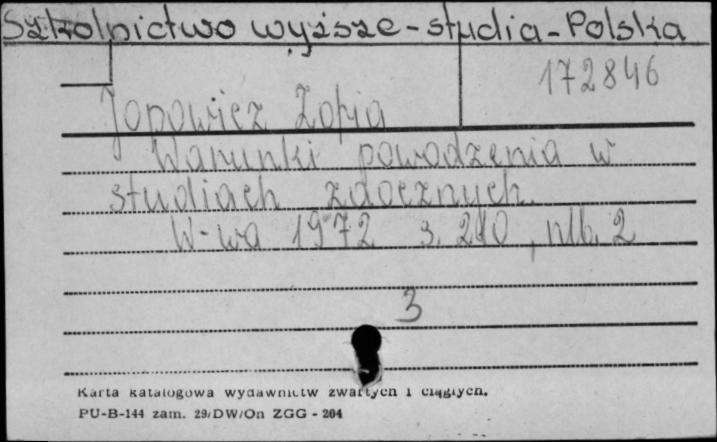 Szkolnictwo wyższe - studia - Polska
172846
Jopowicz Zofia
Warunki powodzenia w
studiach zaocznych.
W-wa 1972 s. 210, nlb. 2
3
Karta katalogowa wydawnictw zwartych i ciągłych.
PU-B-144 zam. 29/DW/On ZGG - 204